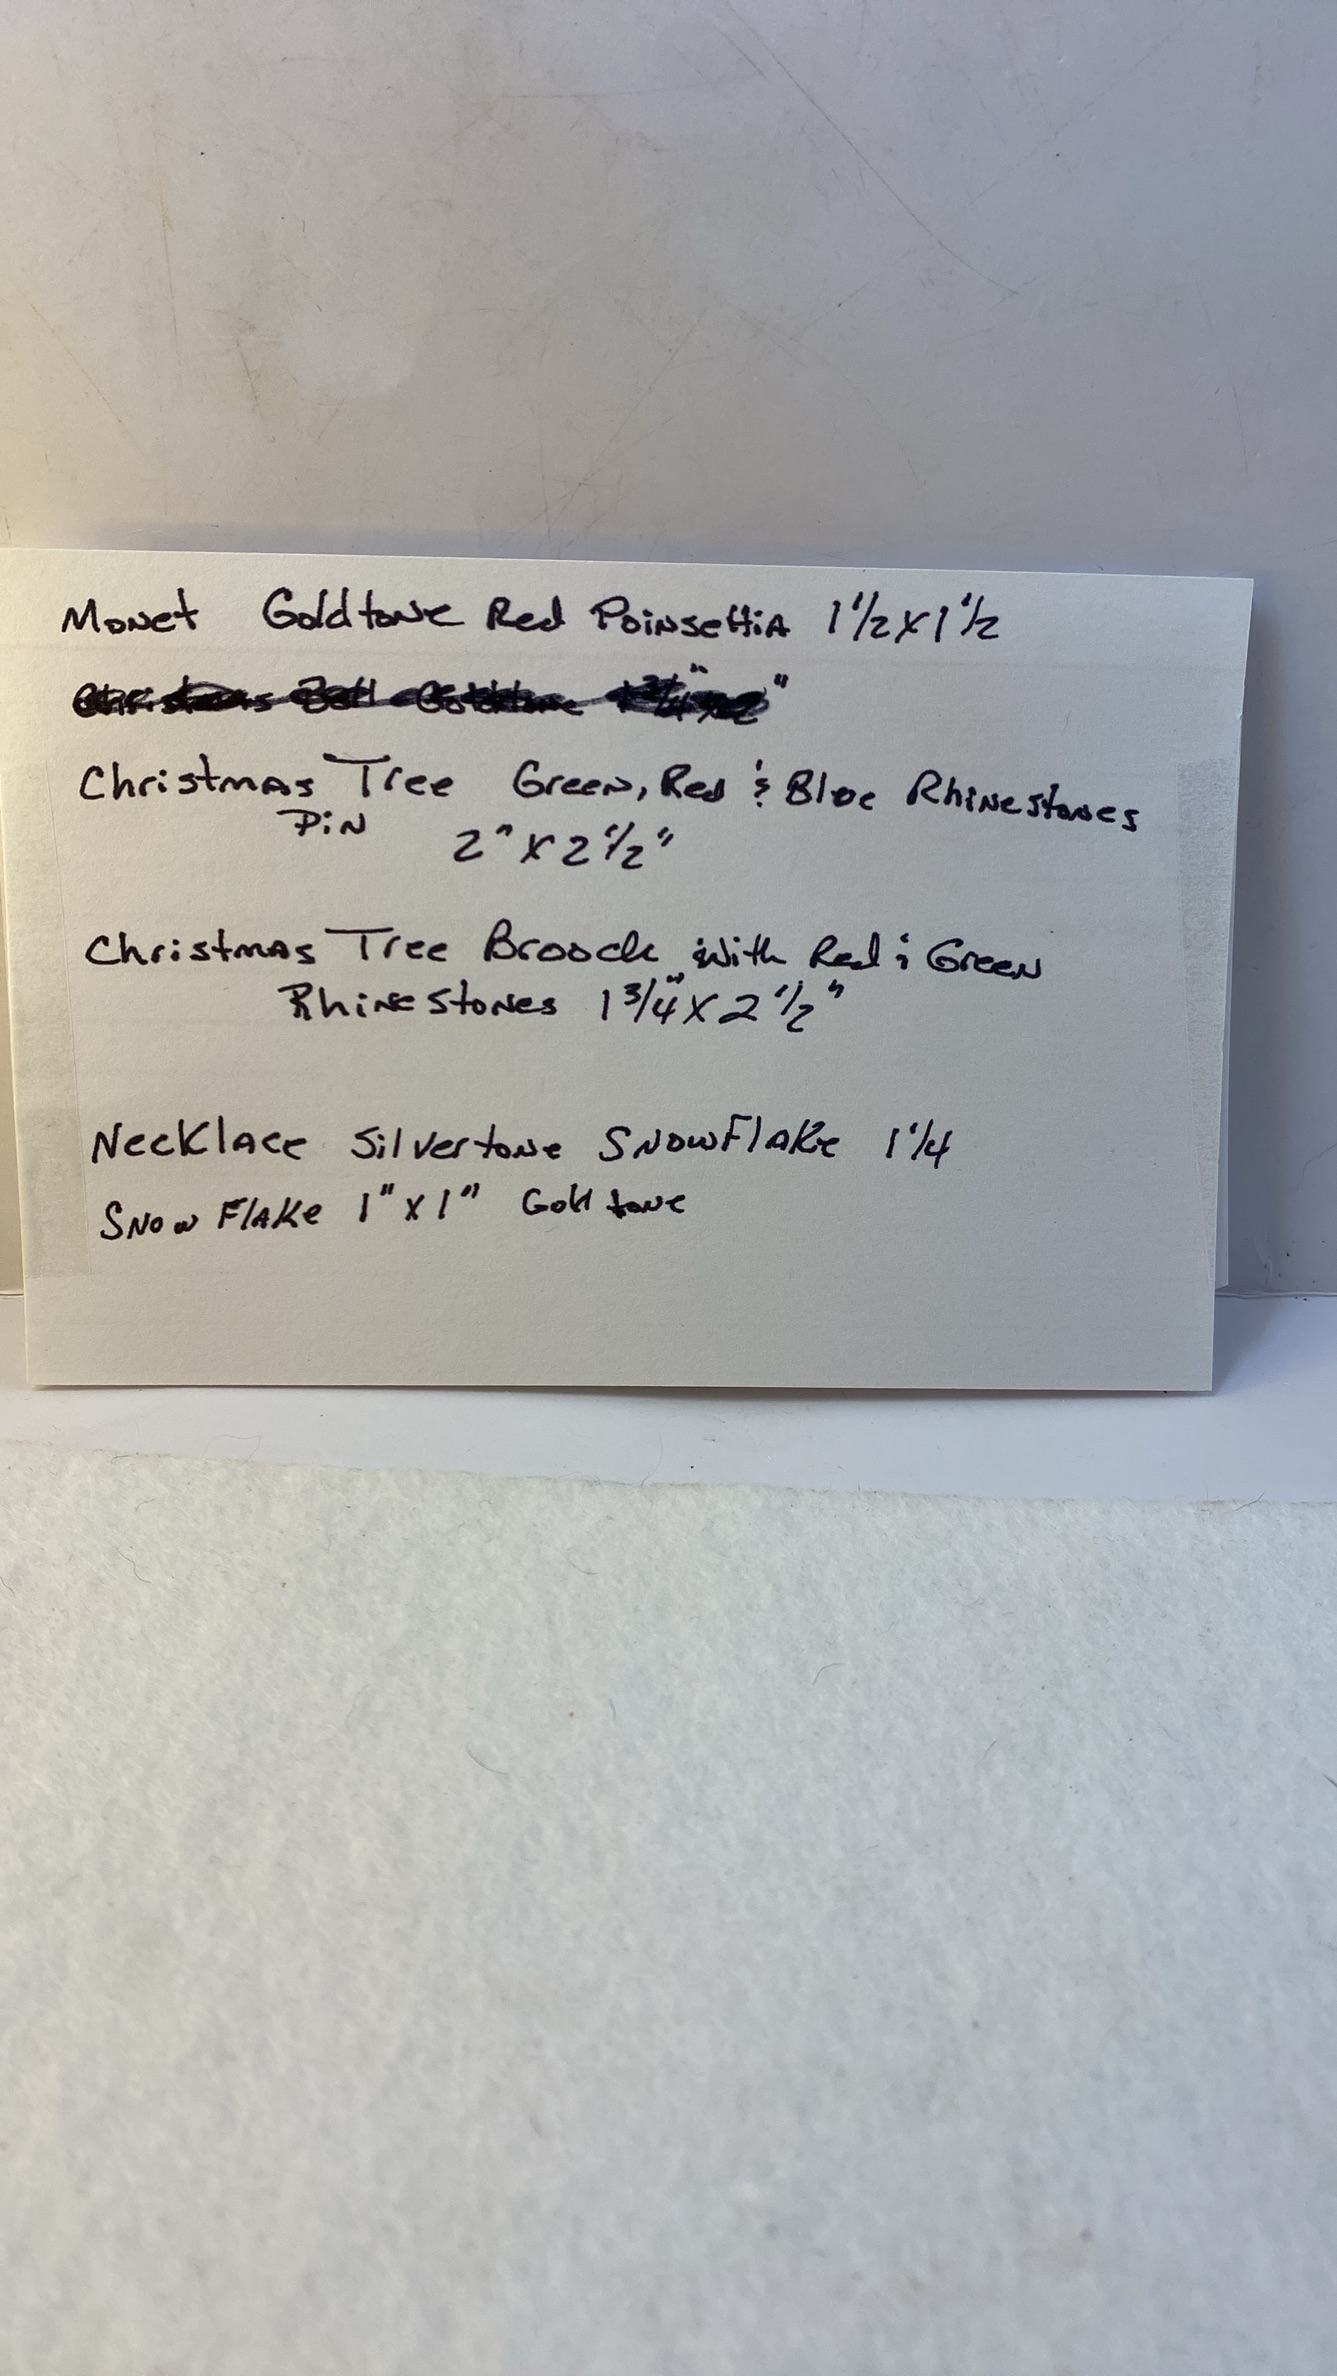 Monet Goldtone Red Poinsettia 1 1/2 X 1 1/2
Christmas Bell Goldtone 1 3/4" X 2"
Christmas Tree Green, Red & Blue Rhinestones
Pin 2" X 2 1/2"
Christmas Tree Broock with Red & Green
Rhinestones 1 3/4" X 2 1/2"
Necklace Silvertone SnowFlake 1 1/4
Snow Flake 1" X 1" Goldtone